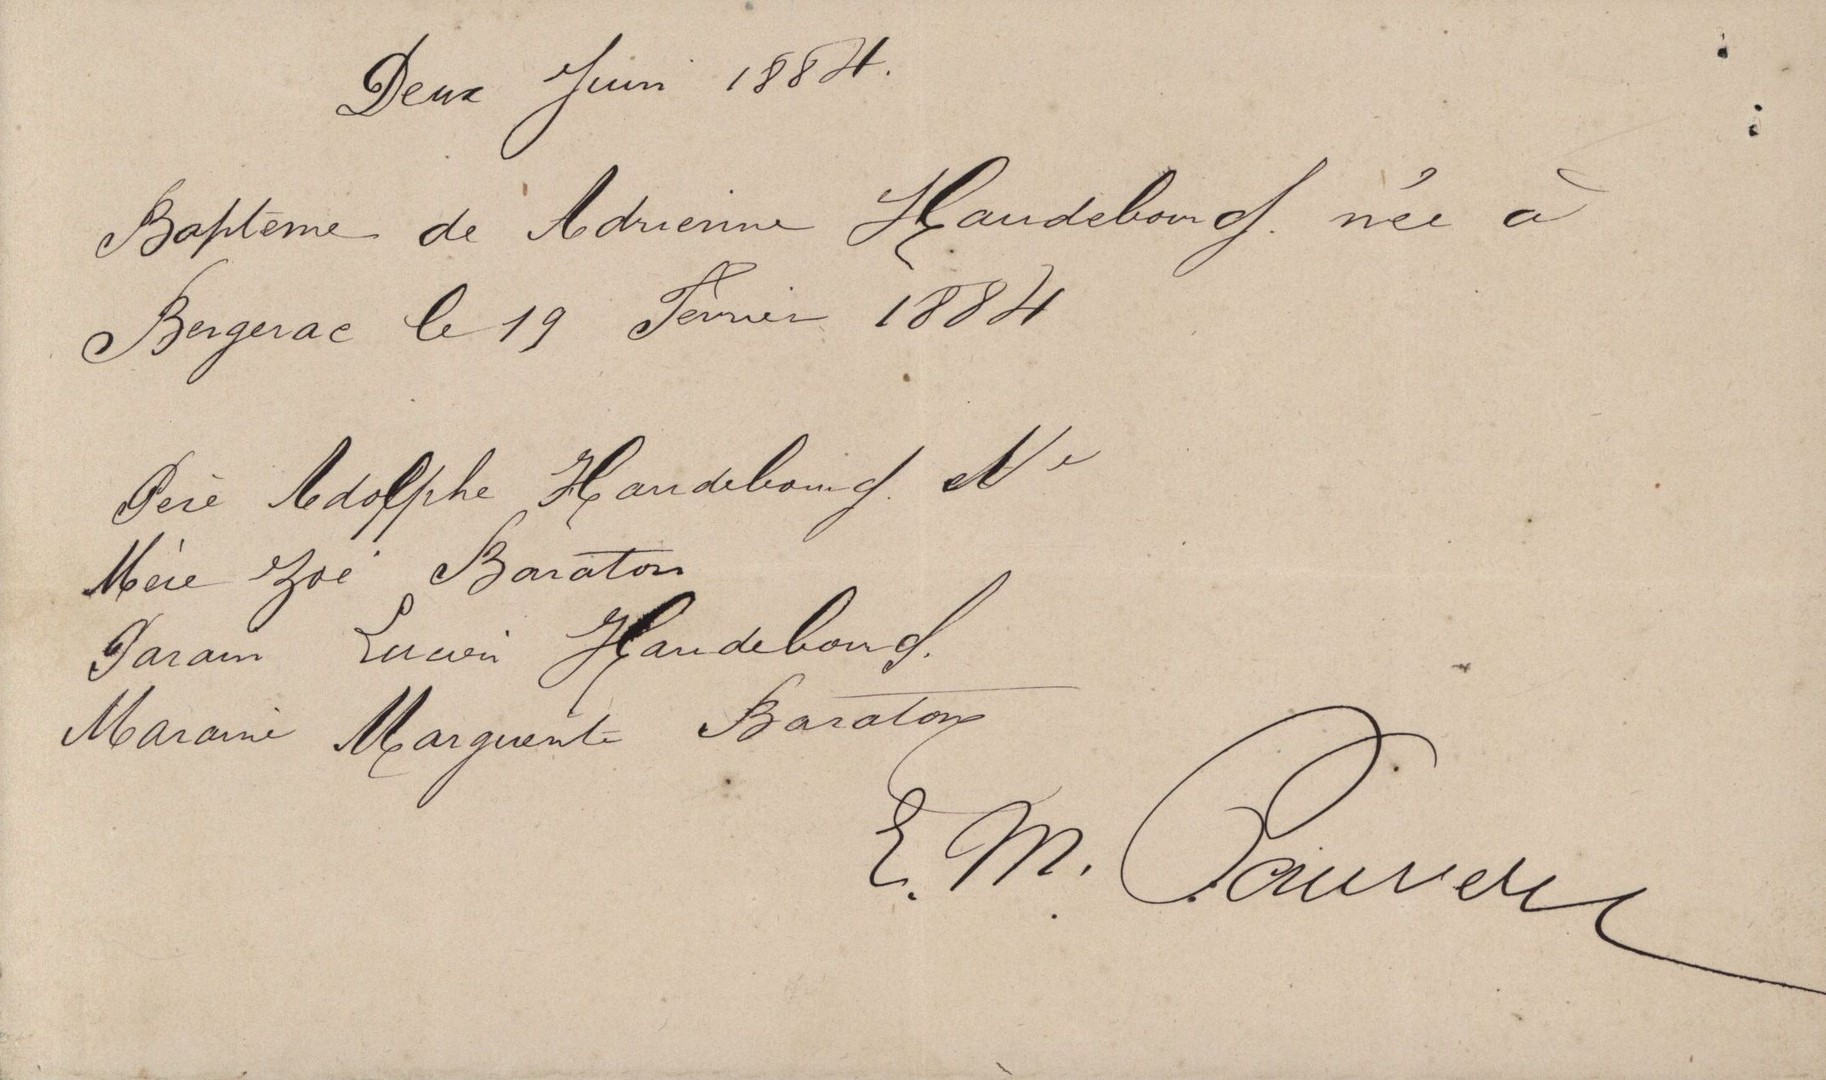 Deux Juin 1884.
Baptème de Adrienne Haudebourg. née à
Bergerac le 19 Février 1884
Père Adolphe Haudebourg. Nt
Mère Zoé Baraton
Parain Lucien Haudebourg.
Maraine Marguerite Baraton
E. M.